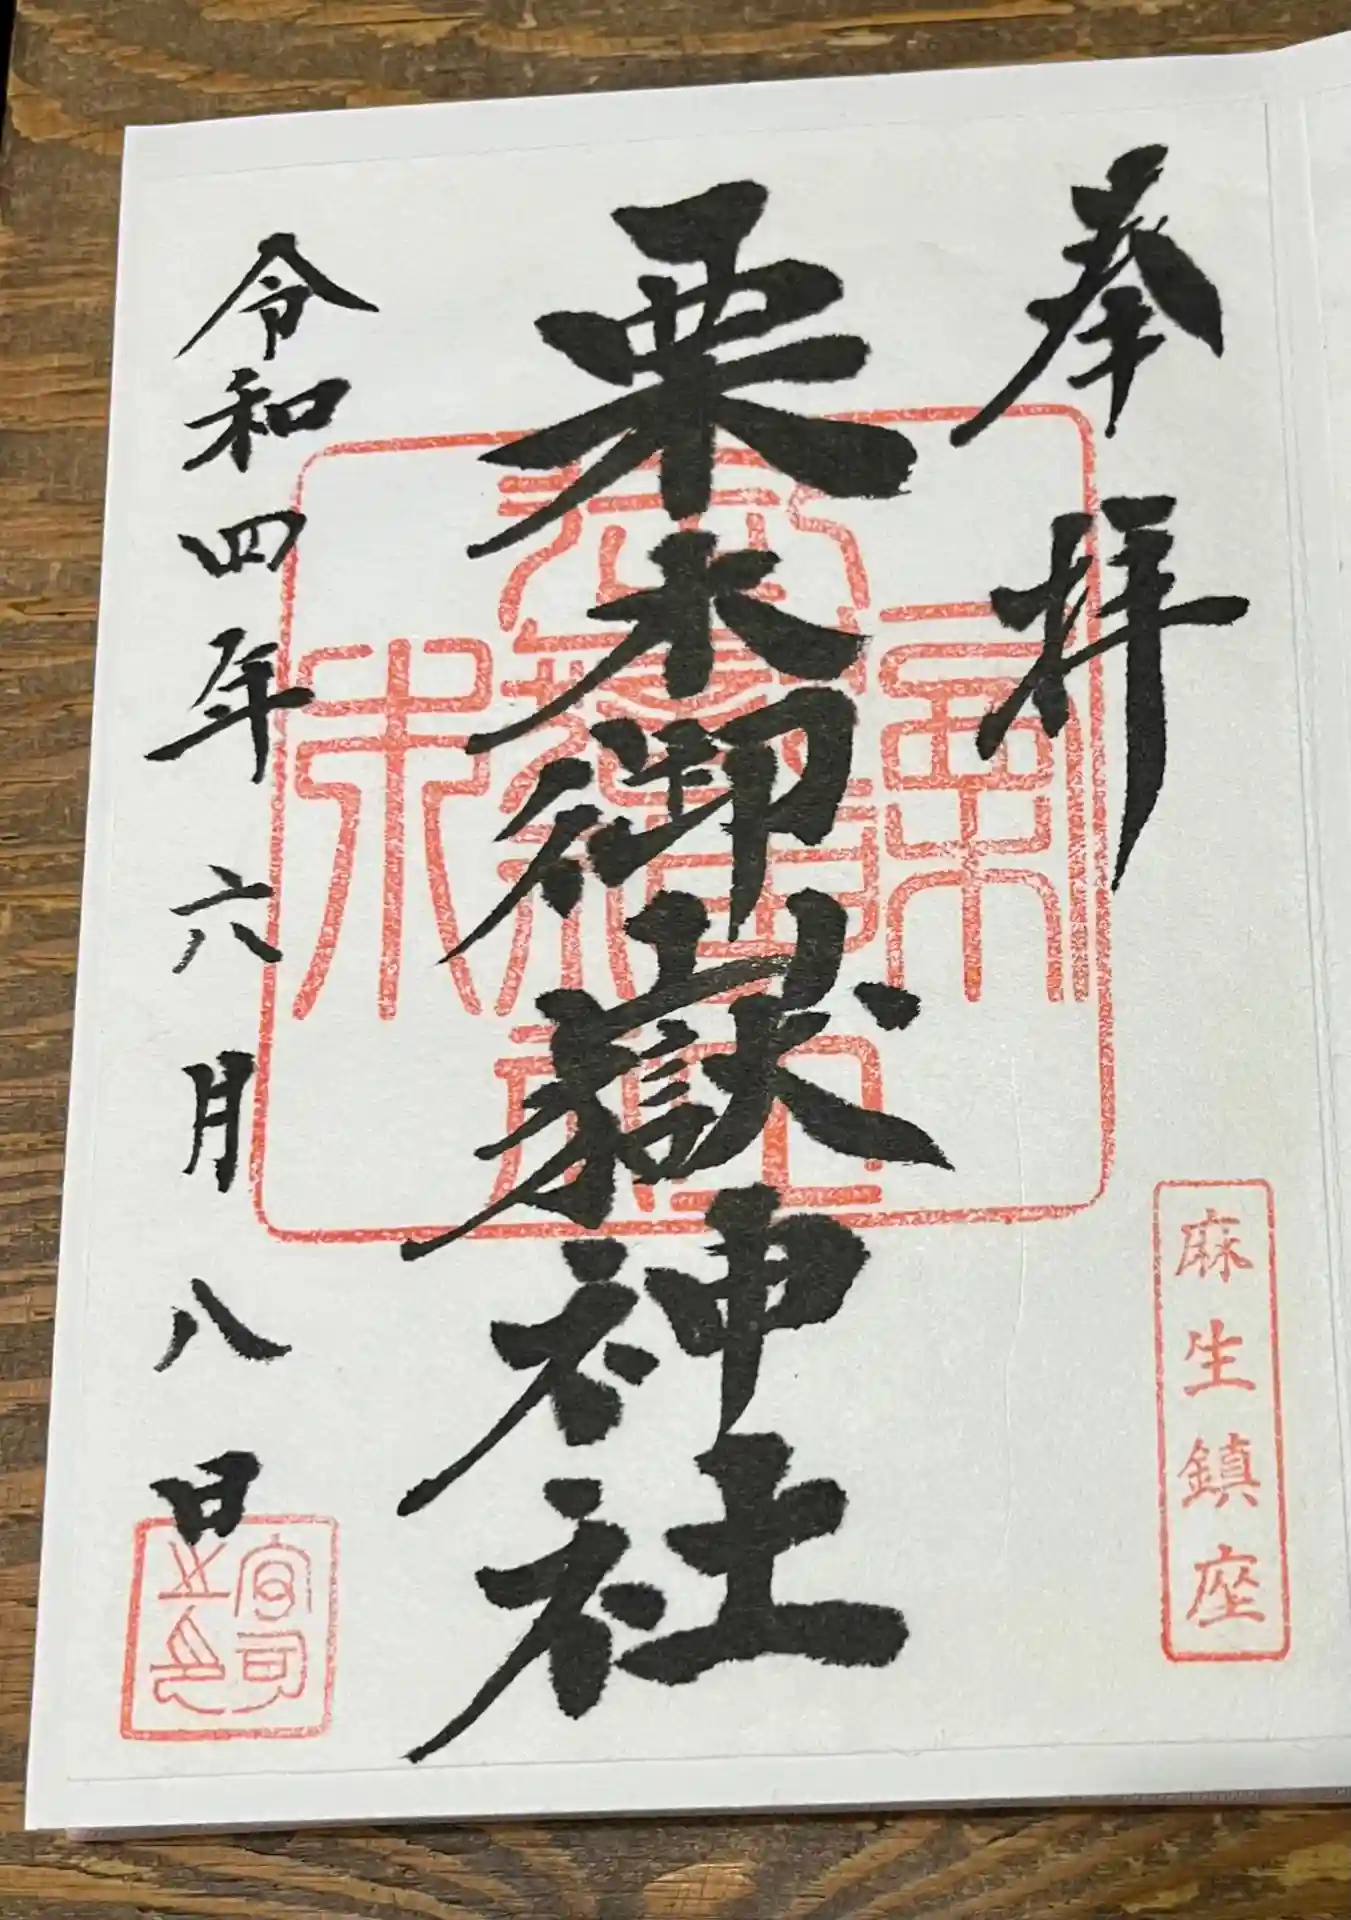 奉拝
麻生鎮座
栗木御嶽神社
令和四年六月八日
宮司之印